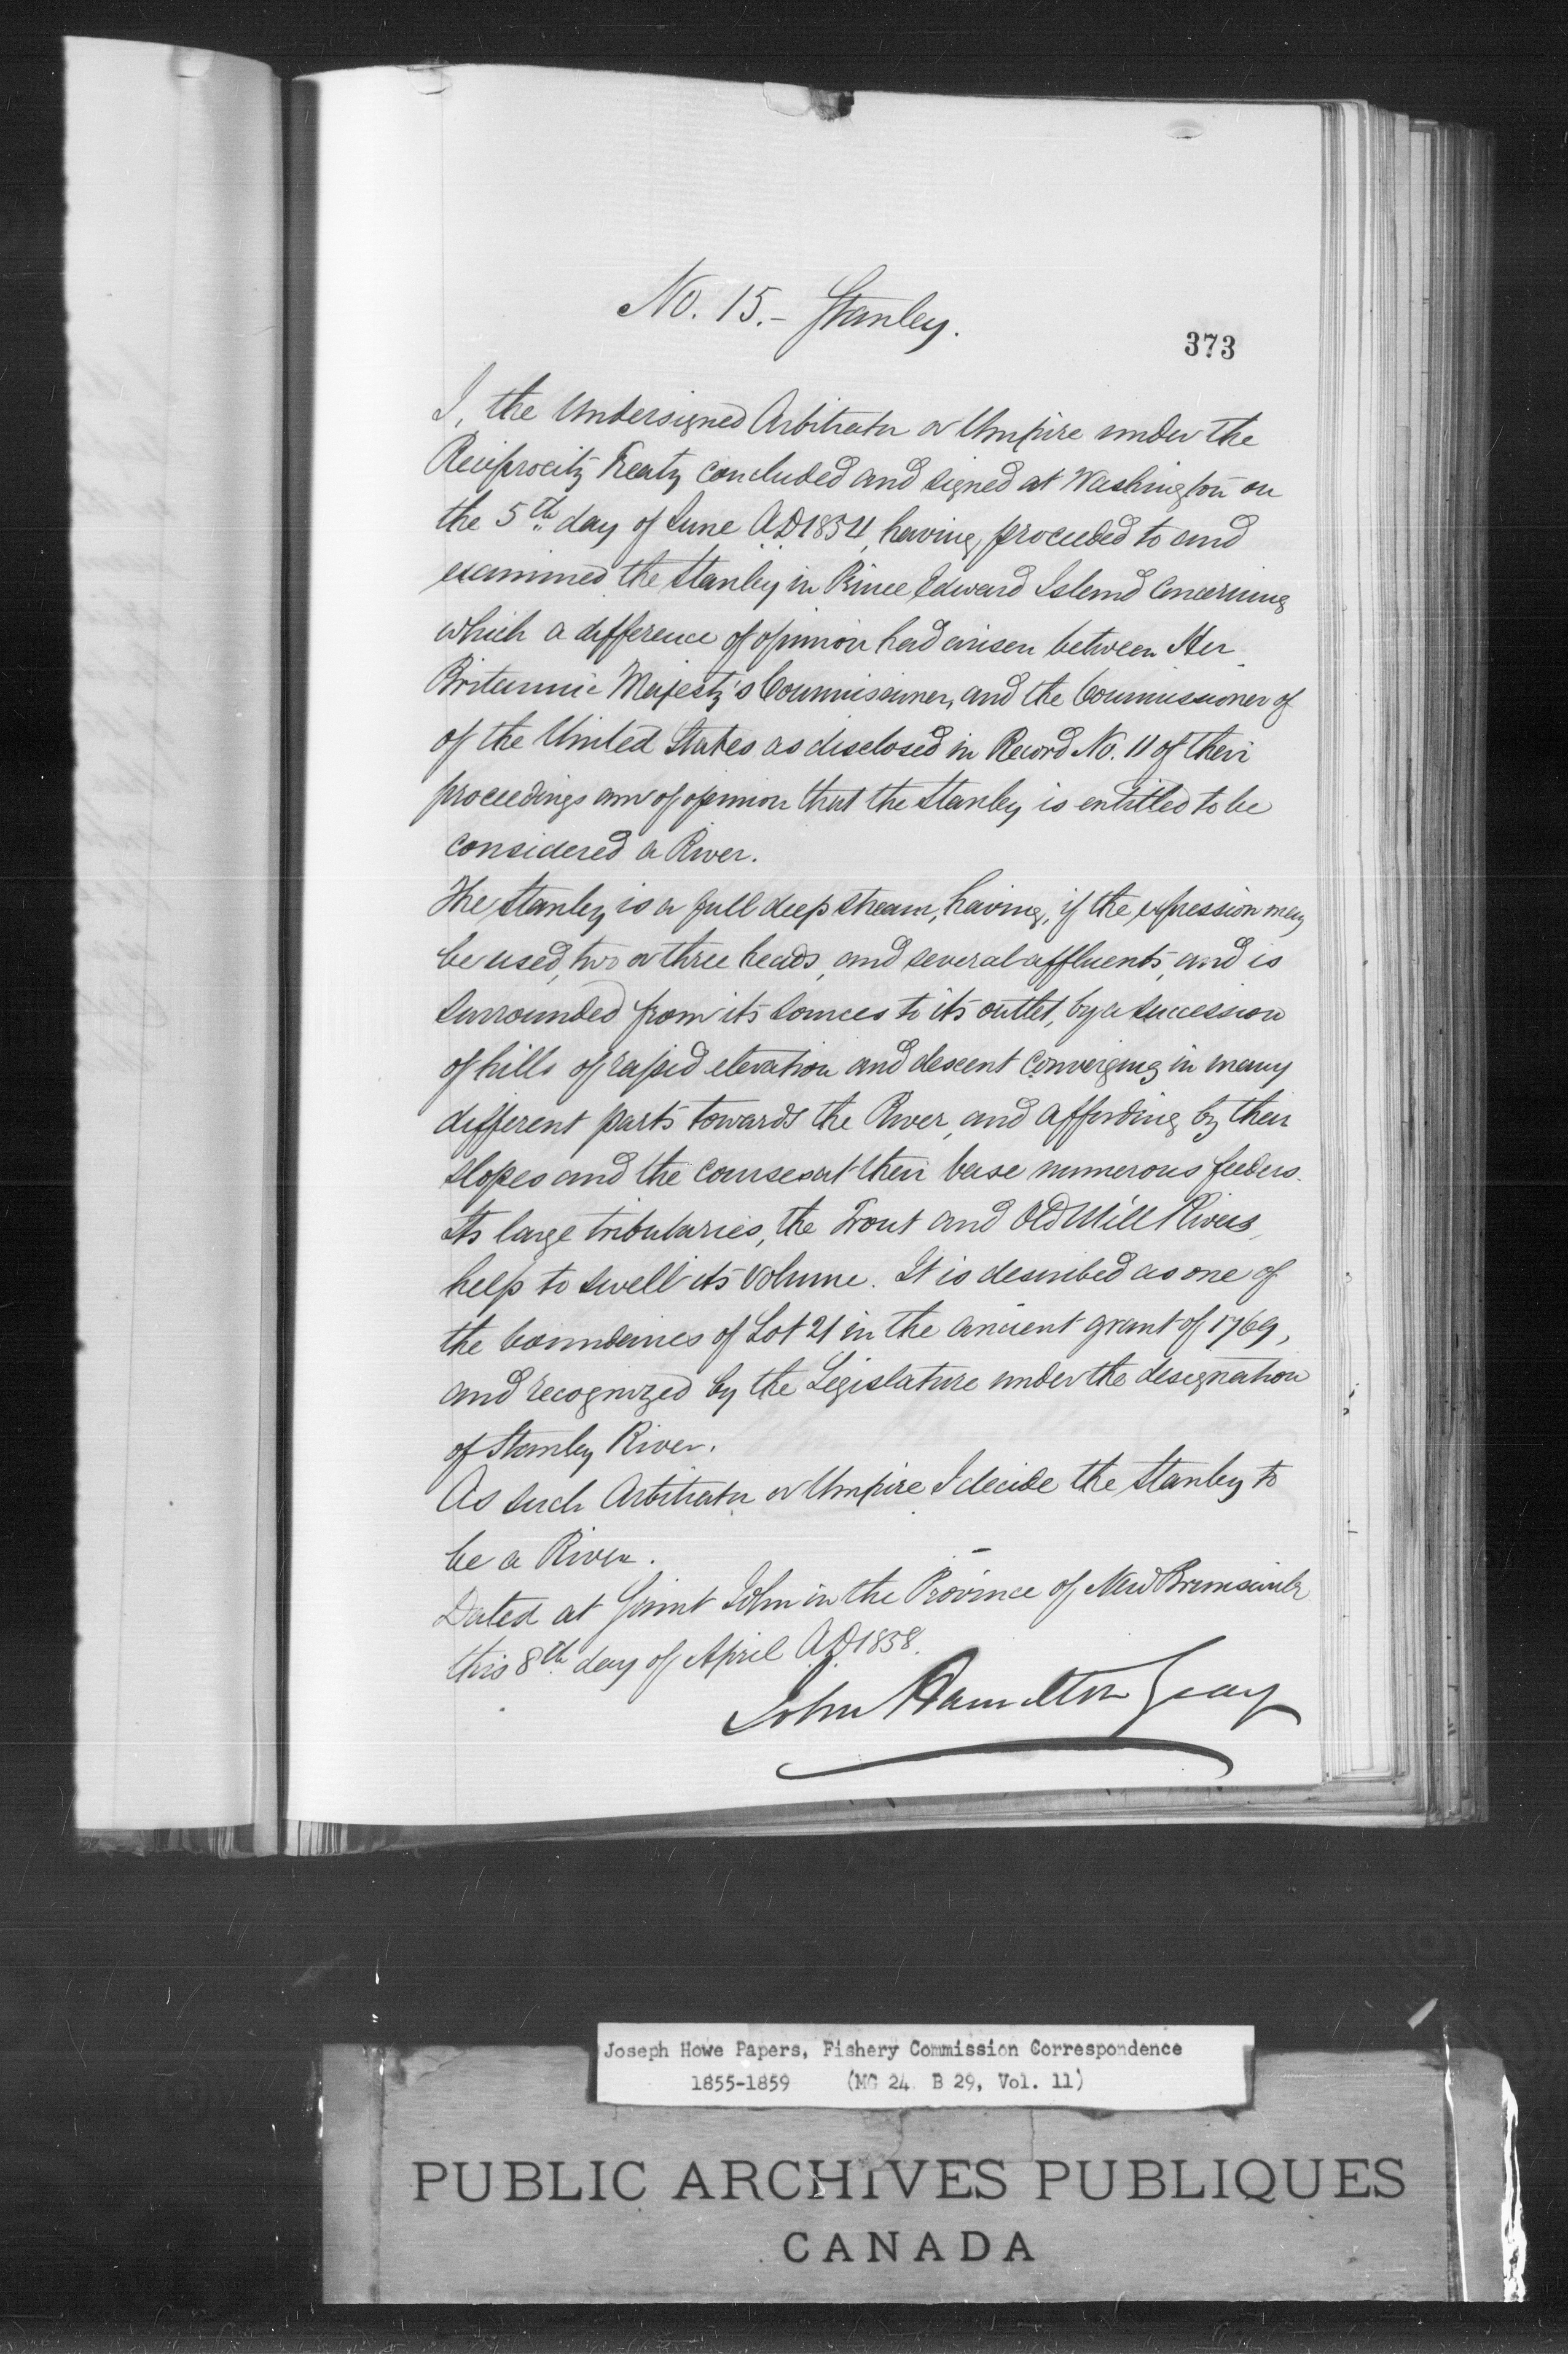 No. 15.- Stanley.
373
I, the Undersigned Arbitrator or Umpire under the
Reciprocity Treaty concluded and signed at Washington on
the 5th day of June A.D 1854, having proceeded to and
examined the Stanley in Prince Edward Island concerning
which a difference of opinion had arisen between Her
Britannic Majesty's Commissioner, and the Commissioner of
of the United States as disclosed in Record No. 11 of their
proceedings am of opinion that the Stanley is entitled to be
considered a River.
The Stanley is a full deep stream, having, if the expression may
be used, two or three heads, and several affluents, and is
surrounded from its sources to its outlet, by a succession
of hills of rapid elevation and descent converging in many
different parts towards the River, and affording by their
slopes and the courses at their base numerous feeders.
Its large tributaries, the Trout and Old Mill Rivers,
help to swell its volume. It is described as one of
the boundaries of Lot 21 in the ancient grant of 1769,
and recognized by the Legislature under the designation
of Stanley River.
As such Arbitrator or Umpire I decide the Stanley to
be a River.
Dated at Saint John in the Province of New Brunswick
this 8th day of April A.D. 1858.
John Hamilton Gray
Joseph Howe Papers, Fishery Commission Correspondence
1855-1859 (MG 24 B 29, Vol. 11)
PUBLIC ARCHIVES PUBLIQUES
CANADA